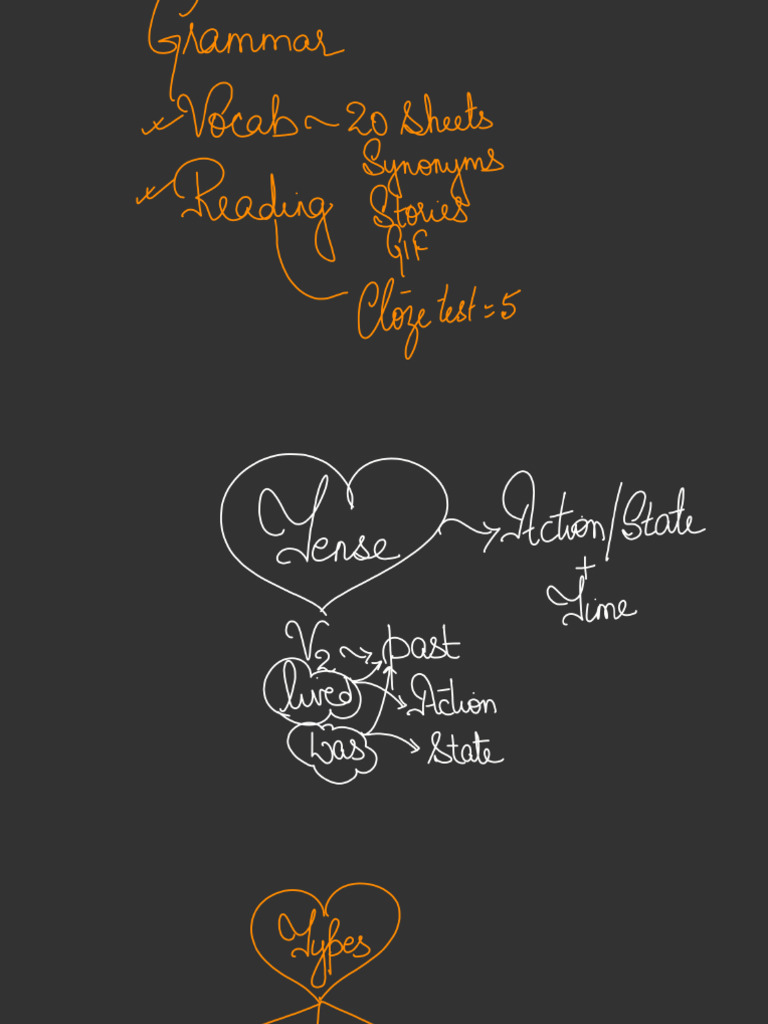 Grammar
Vocab ~ 20 Sheets
Synonyms
Reading Stories
GIF
Cloze test = 5
Tense → Action/State
+
Time
V2 → past
lived → Action
was → State
Types